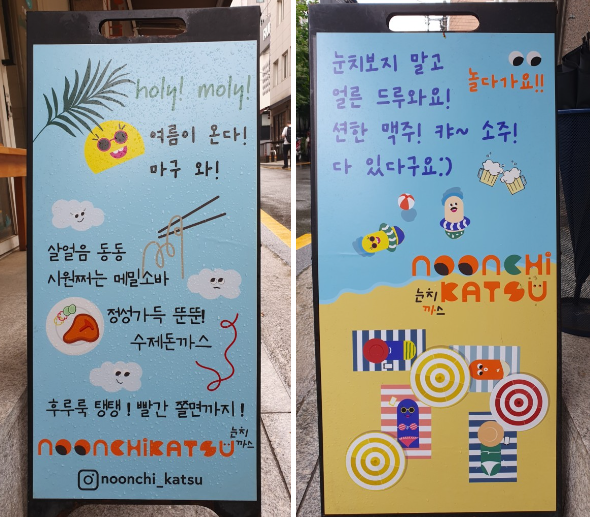 holy! moly!
여름이 온다!
마구 와!
살얼음 동동
시원쩌는 메밀소바
정성가득 뚠뚠!
수제돈까스
후루룩 탱탱! 빨간 쫄면까지!
NOONCHiKATSU
눈치
까스
noonchi_katsu
눈치보지 말고
놀다가요!!
얼른 드루와요!
션한 맥주! 캬~ 소주!
다 있다구요:)
NOONCHi
눈치
까스
KATSU